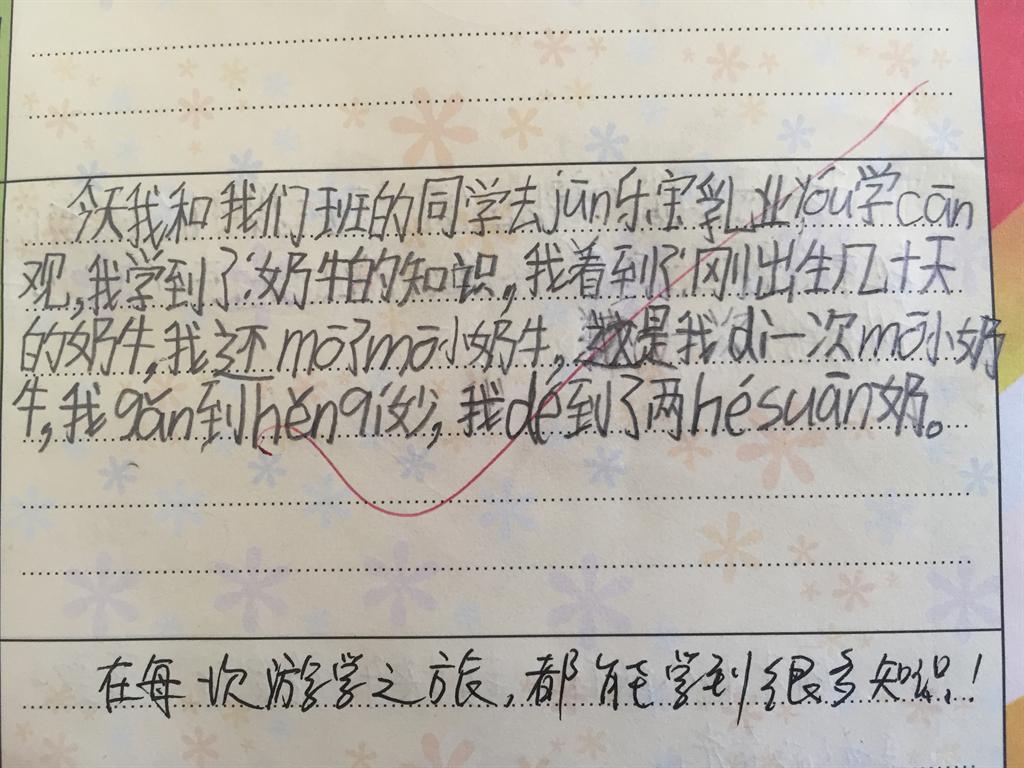 今天我和我们班的同学去jūn乐宝乳业yóu学cān
观,我学到了奶牛的知识,我看到了刚出生几十天
的奶牛,我还mō了mō小奶牛,这是我dì一次mō小奶
牛,我gǎn到hěn qí妙,我dé到了两hésuān奶。
在每次游学之旅,都能学到很多知识!